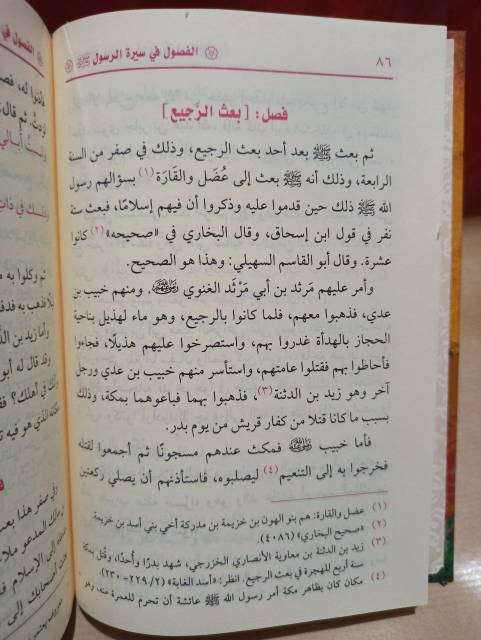 ٨٦ الفصول في سيرة الرسول ﷺ
فصل: [بعث الرَّجيع]
ثم بعث ﷺ بعد أحد بعث الرجيع، وذلك في صفر من السنة
الرابعة، وذلك أنه ﷺ بعث إلى عُضَل والقَارَة(١) بسؤالهم رسول
الله ﷺ ذلك حين قدموا عليه وذكروا أن فيهم إسلامًا، فبعث ستة
نفر في قول ابن إسحاق، وقال البخاري في «صحيحه»(٢) كانوا
عشرة. وقال أبو القاسم السهيلي: وهذا هو الصحيح.
وأمر عليهم مَرثد بن أبي مَرْثَد الغنوي رضي الله عنه، ومنهم خبيب بن
عدي، فذهبوا معهم، فلما كانوا بالرجيع، وهو ماء لهذيل بناحية
الحجاز بالهدأة غدروا بهم، واستصرخوا عليهم هذيلًا، فجاءوا
فأحاطوا بهم فقتلوا عامتهم، واستأسر منهم خبيب بن عدي ورجل
آخر وهو زيد بن الدثنة(٣)، فذهبوا بهما فباعوهما بمكة، وذلك
بسبب ما كانا قتلا من كفار قريش من يوم بدر.
فأما خبيب رضي الله عنه فمكث عندهم مسجونًا ثم أجمعوا لقتله
فخرجوا به إلى التنعيم(٤) ليصلبوه، فاستأذنهم أن يصلي ركعتين
(١) عضل والقارة: هم بنو الهون بن خزيمة بن مدركة أخي بني أسد بن خزيمة.
(٢) «صحيح البخاري» (٤٠٨٦).
(٣) زيد بن الدثنة بن معاوية الأنصاري الخزرجي، شهد بدرًا وأحدًا، وقُتل بمكة
سنة أربع للهجرة في بعث الرجيع. انظر: «أسد الغابة» (٢/ ٢٢٩-٢٣٠).
(٤) مكان كان بظاهر مكة أمر رسول الله ﷺ عائشة أن تحرم للعمرة منه، وهو